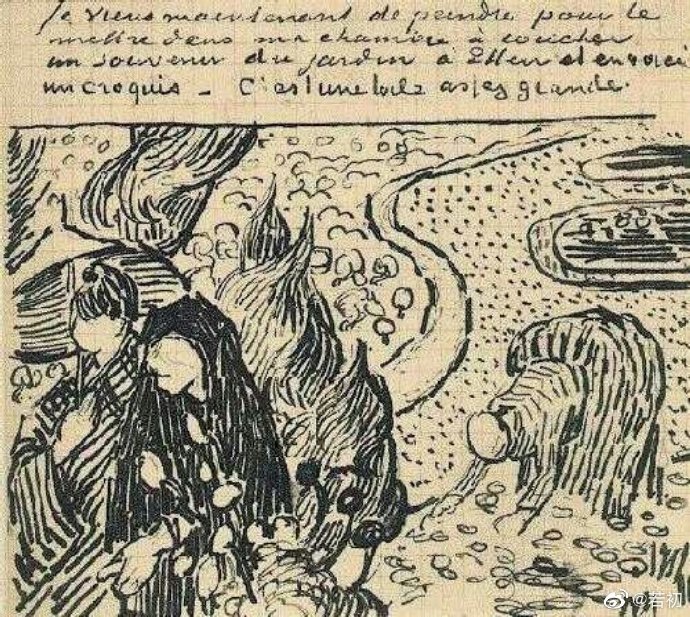 Je viens maintenant de peindre pour le
mettre dans ma chambre à coucher
un souvenir du jardin à Etten et en voici
un croquis – C'est une toile assez grande.
@若初